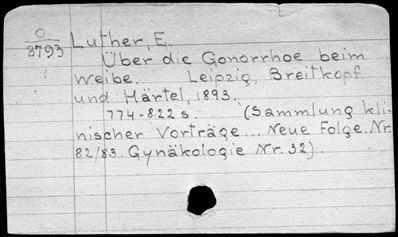 O
8793
Luther, E.
Über die Gonorrhoe beim
Weibe. Leipzig, Breitkopf
und Härtel, 1893.
774-822 s. (Sammlung kli-
nischer Vorträge... Neue Folge. Nr.
82/83. Gynäkologie Nr. 32).